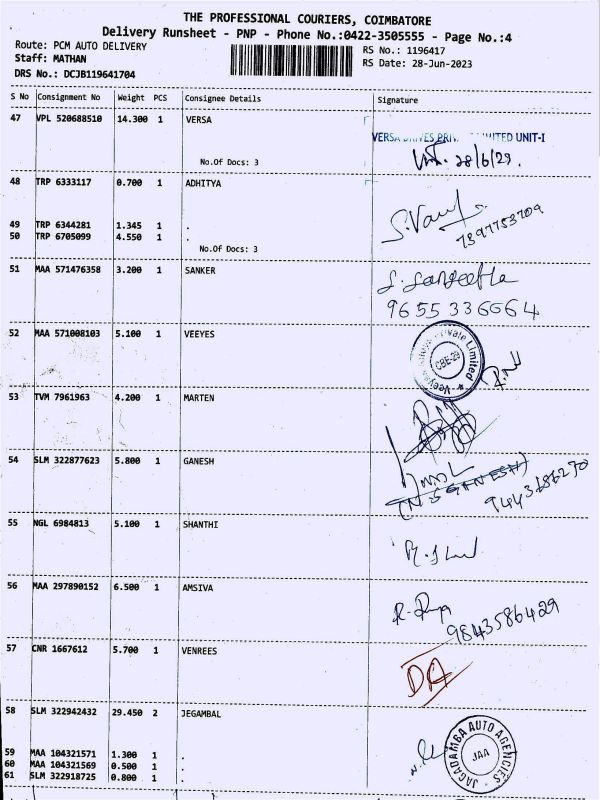 THE PROFESSIONAL COURIERS, COIMBATORE
Delivery Runsheet - PNP - Phone No.:0422-3505555 - Page No.:4
Route: PCM AUTO DELIVERY
RS No.: 1196417
Staff: MATHAN
RS Date: 28-Jun-2023
DRS No.: DCJB119641704
S No Consignment No Weight PCS Consignee Details Signature
47 VPL 520688510 14.300 1 VERSA
VERSA DRIVES UNIT-I
28/6/23.
No.Of Docs: 3
48 TRP 6333117 0.700 1 ADHITYA
49 TRP 6344281 1.345 1 .
7397753709
50 TRP 6705099 4.550 1 .
No.Of Docs: 3
51 MAA 571476358 3.200 1 SANKER
S. Sangeetha
9655336664
52 MAA 571008103 5.100 1 VEEYES
Private Limited
CBE-29
53 TVM 7961963 4.200 1 MARTEN
54 SLM 322877623 5.800 1 GANESH
(N S GANESH)
9443686270
55 NGL 6984813 5.100 1 SHANTHI
56 MAA 297890152 6.500 1 AMSIVA
9843586429
57 CNR 1667612 5.700 1 VENREES
58 SLM 322942432 29.450 2 JEGAMBAL
JAGADAMBA AUTO AGENCIES
JAA
59 MAA 104321571 1.300 1 .
60 MAA 104321569 0.500 1 .
61 SLM 322918725 0.800 1 .